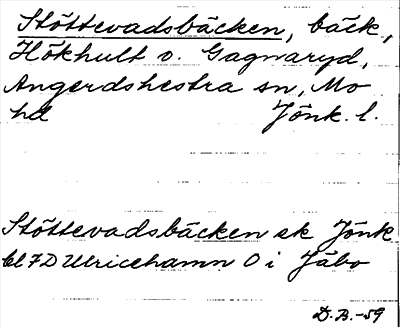 Stöttevadsbäcken, bäck,
Hökhult o. Gagnaryd,
Angerdshestra sn, Mo
hd Jönk. l.
Stöttevadsbäcken ek Jönk
bl 7 D Ulricehamn O i Jäbo
D.B.-59